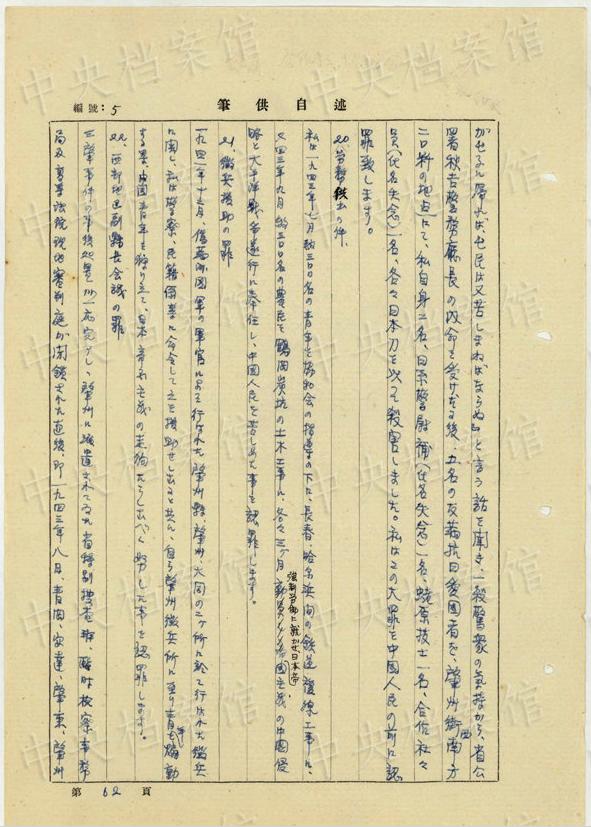 編號：5
述自供筆
がせるに居れば、住民は又苦しまねばならぬ』と言う話を聞き、一殺警衆の気持から、省公
署秋吉警務廳長の内命を受けたる後、五名の反満抗日愛國者を、肇州街南西方
二口料の地点にて、私自身二名、日系警尉補(氏名失念)一名、蛯原技士一名、合作社々
員(氏名失念)一名、各々日本刀を以て殺害しました。私はこの大罪を中國人民の前に認
罪致します。
20、労務供出の件、
私は一九四三年七月約三00名の青年を協和会の指導の下に、長春、哈尓浜間の鉄道復線工事に、
又四三年九月約三00名の農民を鶴岡炭坑の土木工事に、各々三ヶ月強制労働に就かせ日本帝國主義の中國侵
略と大平洋戦争遂行に奉仕し、中國人民を苦しめた事を認罪します。
21、徴兵援助の罪
一九四一年十二月、偽満州國軍の軍官に依る行なわれた肇州縣、肇州、大同の二ヶ所に於て行なわれた徴兵
に関し、私は警察、民籍係等に命令して之を援助せしめると共に、自ら肇州徴兵所に至り青年を煽動
する等、中國青年を狩り立て、日本帝國主義の走狗たらしむべく努めた事を認罪します。
22、西部地区副縣長会議の罪
三肇事件の事後処置が一應完了し、肇州に派遣されてゐた省特別搜查班、臨时検察事務
局及高等法院現地審判庭が閉鎖された直後、即一九四三年八月、青岡、安達、肇東、肇州
第 62 頁
中央档案馆